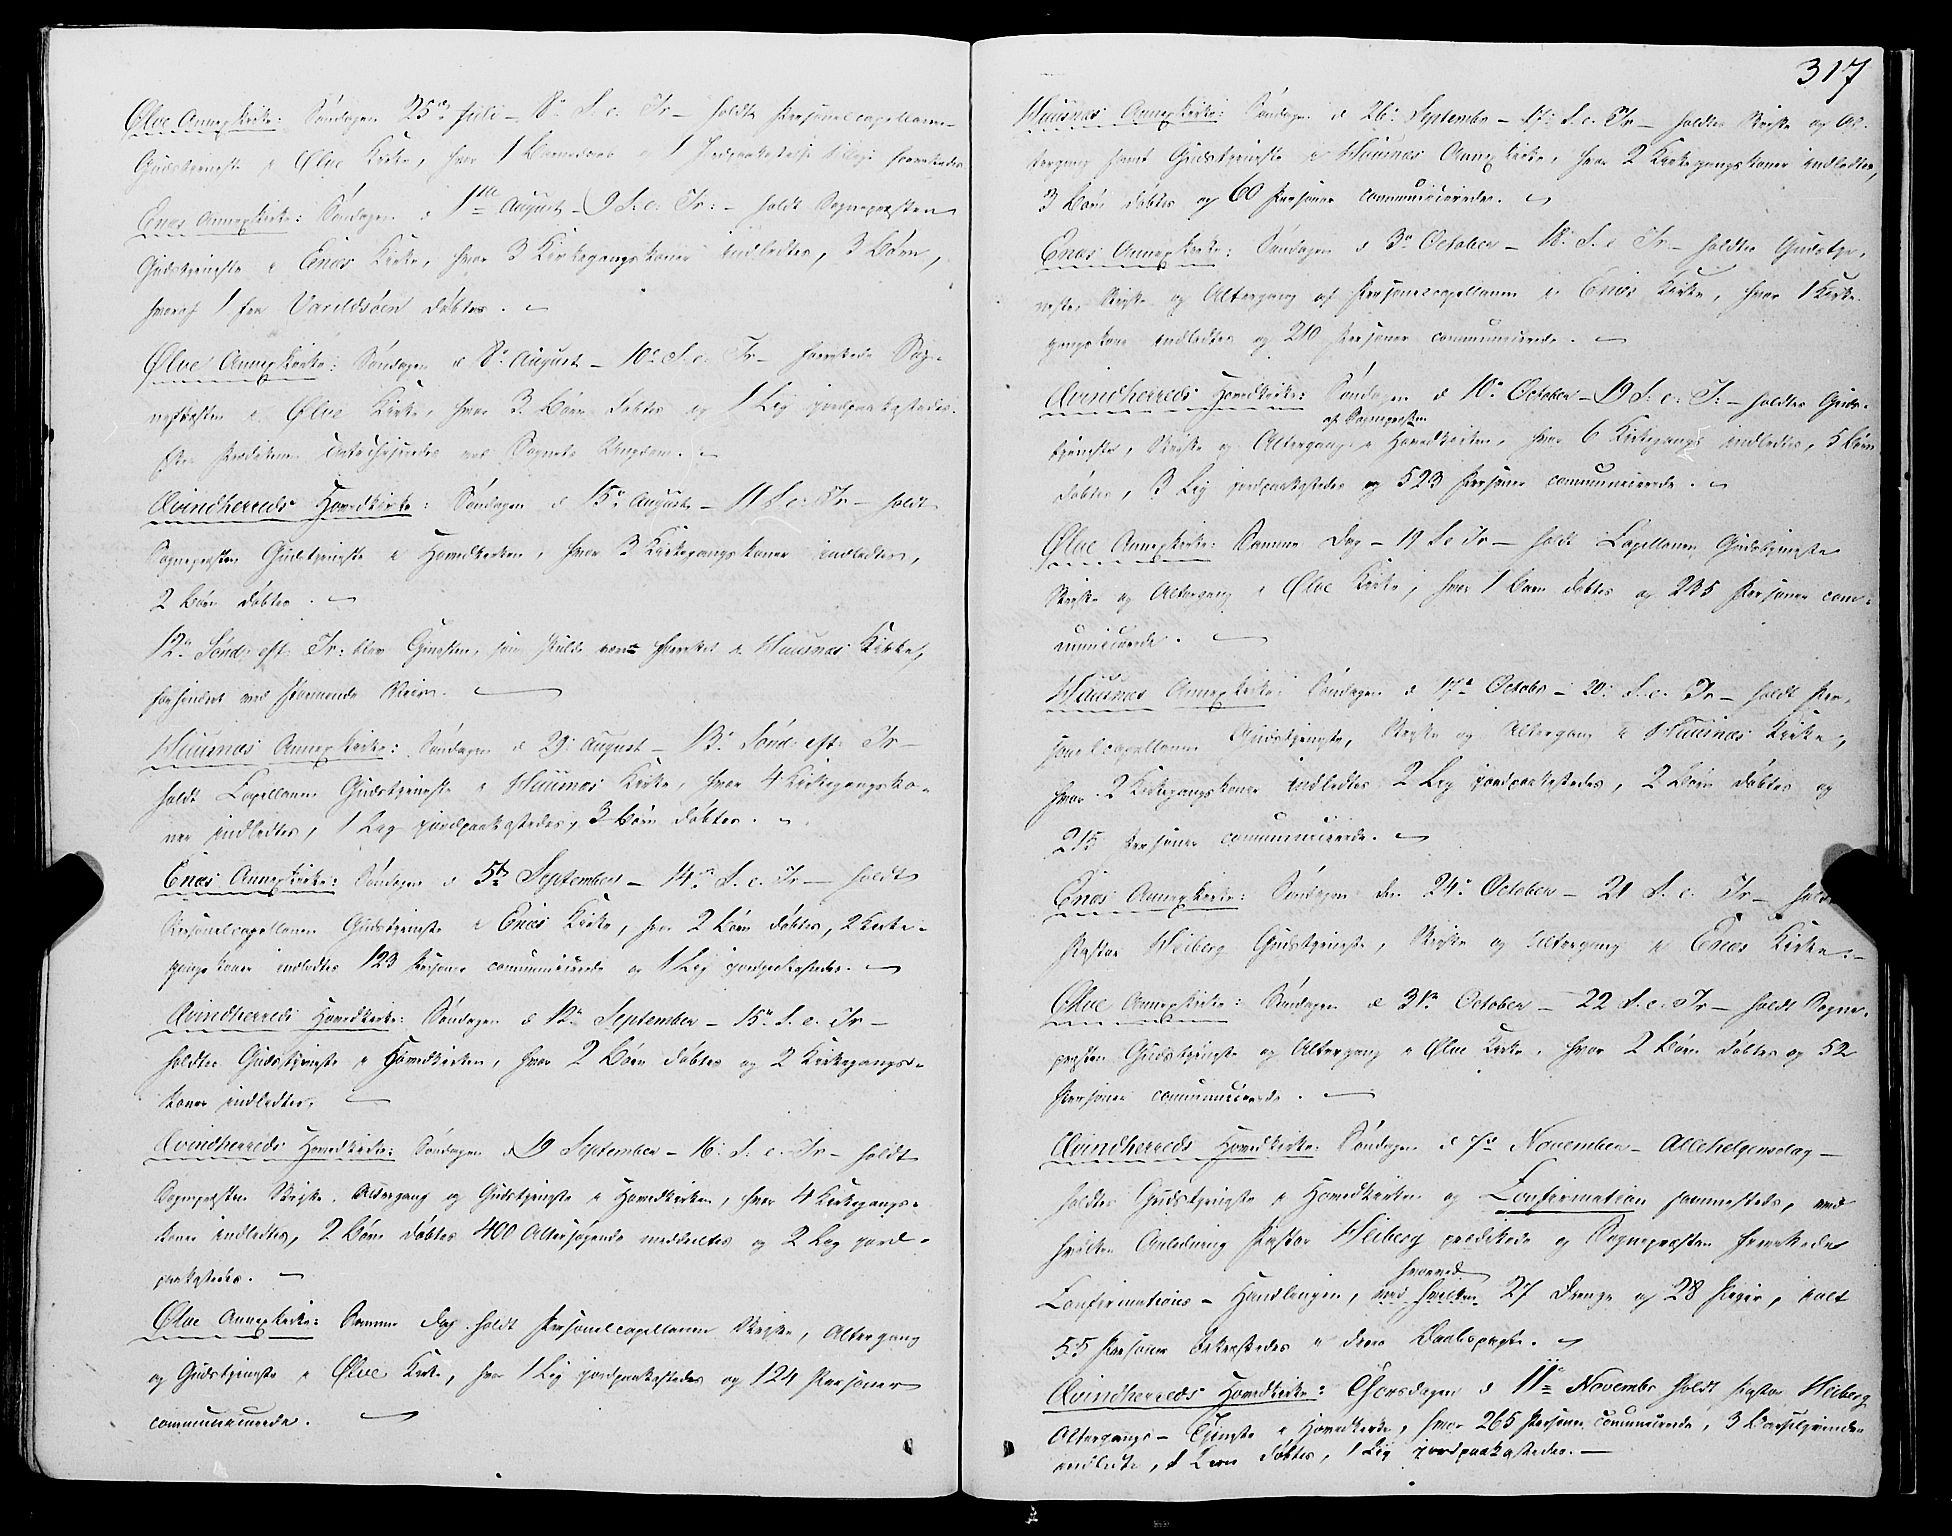 317
Ølve Annexkirke: Søndagen 25de Juli – 8de S. e. Tr – holdt Personelcapellanen
Gudstjeneste i Ølve Kirke, hvor 1 Barnedaab og 1 Jordpaakastelse
Enæs Annexkirke: Søndagen d 1ste August – 9 S. e. Tr: – holdt Sognepræsten
Gudstjeneste i Enæs Kirke, hvor 3 Kirkegangskoner indledtes, 3 Børn,
hvoraf 1 fra Varildsöen döbtes.
Ølve Annexkirke: Søndagen d 8de August – 10de S. e. Tr – forrettede Sog-
nepræsten i Ølve Kirke, hvor 3 Børn döbtes og 1 Liig jordpaakastedes.
Efter Prædiken catechiseredes med Sognets Ungdom.
Qvindherreds Hovedkirke: Søndagen d 15de August – 11 S. e. Tr – holdt
Sognepræsten Gudstjeneste i Hovedkirken, hvor 3 Kirkegangskoner indledtes,
2 Børn döbtes.
12te Sönd: eft: Tr: blev Tjenesten, som skulde været forrettet i Huusnæs Kirke,
forhindret ved stormende Veir.
Huusnæs Annexkirke: Søndagen d 29de August – 13de Sönd: eft: Tr –
holdt Capellanen Gudstjeneste i Huusnæs Kirke, hvor 4 Kirkegangsko-
ner indledtes, 1 Lig jordpaakastedes, 3 Børn döbtes.
Enæs Annexkirke: Søndagen d 5te September – 14de S. e. Tr – holdt
Personelcapellanen Gudstjeneste i Enæs Kirke, hvor 2 Børn döbtes, 2 Kirke-
gangskoner indledtes 123 Personer communicerede og 1 Lig jordpaakastedes.
Qvindherreds Hovedkirke: Søndagen d 12te September – 15de S. e. Tr –
holdtes Gudstjeneste i Hovedkirken, hvor 2 Børn döbtes og 2 Kirkegangs-
koner indledtes.
Qvindherreds Hovedkirke: Søndagen d 19 September – 16: S. e. Tr – holdt
Sognepræsten Skrifte, Altergang og Gudstjeneste i Hovedkirken, hvor 4 Kirkegangs-
koner indledtes, 2 Børn döbtes 400 Altersøgende meddeeltes og 2 Lig jord-
paakastedes.
Ølve Annexkirke: Samme Dag holdt Personelcapellanen Skrifte, Altergang
og Gudstjeneste i Ølve Kirke, hvor 1 Lig jordpaakastedes og 124 Personer
communicerede.
Huusnæs Annexkirke: Søndagen d 26de September – 17de S. e. Tr – holdtes Skrifte og Al-
tergang samt Gudstjeneste i Huusnæs Annexkirke, hvor 2 Kirkegangskoner indledtes,
3 Børn döbtes og 60 Personer communicerede.
Enæs Annexkirke: Søndagen d 3de October – 18de S. e. Tr – holdtes Gudstje-
neste, Skrifte og Altergang af Personelcapellanen i Enæs Kirke, hvor 1 Kirke-
gangskone indledtes og 210 Personer communicerede.
Qvindherreds Hovedkirke: Søndagen d 10de October – 19 S. e. T: – holdtes Guds-
tjeneste, Skrifte og Altergang af Sognepræsten i Hovedkirken, hvor 6 Kirkegangs indledtes, 5 Børn
döbtes, 3 Lig jordpaakastedes og 523 Personer communicerede.
Ølve Annexkirke: Samme Dag – 19 S. e. Tr – holdt Capellanen Gudstjeneste
Skrifte og Altergang i Ølve Kirke, hvor 1 Barn döbtes og 235 Personer com-
municerede.
Huusnæs Annexkirke: Søndagen d 17de Octobr – 20: S. e. Tr – holdt Per-
sonelcapellanen Gudstjeneste, Skrifte og Altergang i Huusnæs Kirke,
hvor 2 Kirkegangskoner indledtes 2 Lig jordpaakastedes, 2 Børn döbtes og
215 Personer communicerede.
Enæs Annexkirke: Søndagen den 24de October – 21 S. e. Tr – holdt
Pastor Heiberg Gudstjeneste, Skrifte og Altergang i Enæs Kirke.
Ølve Annexkirke: Søndagen d 31te October – 22 S. e. Tr – holdt Sogne-
præsten Gudstjeneste og Altergang i Ølve Kirke, hvor 2 Børn döbtes og 52
Personer communicerede.
Qvindherreds Hovedkirke: Søndagen d 7de November – Allehelgensdag –
holdtes Gudstjeneste i Hovedkirken og Confirmation sammesteds, ved
hvilken Anledning Pastor Heiberg prædikede og Sognepræsten forrettede
Confirmations-Handlingen, ved hvilken hvorved 27 Drenge og 28 Piger, ialt
55 Personer bekræftedes i deres Daabspagt.
Qvindherreds Hovedkirke: Thorsdagen d 11te Novembr holdt Pastor Heiberg
Altergangs-Tjeneste i Hovedkirken, hvor 265 Personer communicerede, 3 Barselqvinder
indledte, 1 Barn döbtes, 1 Lig jordpaakastedes.